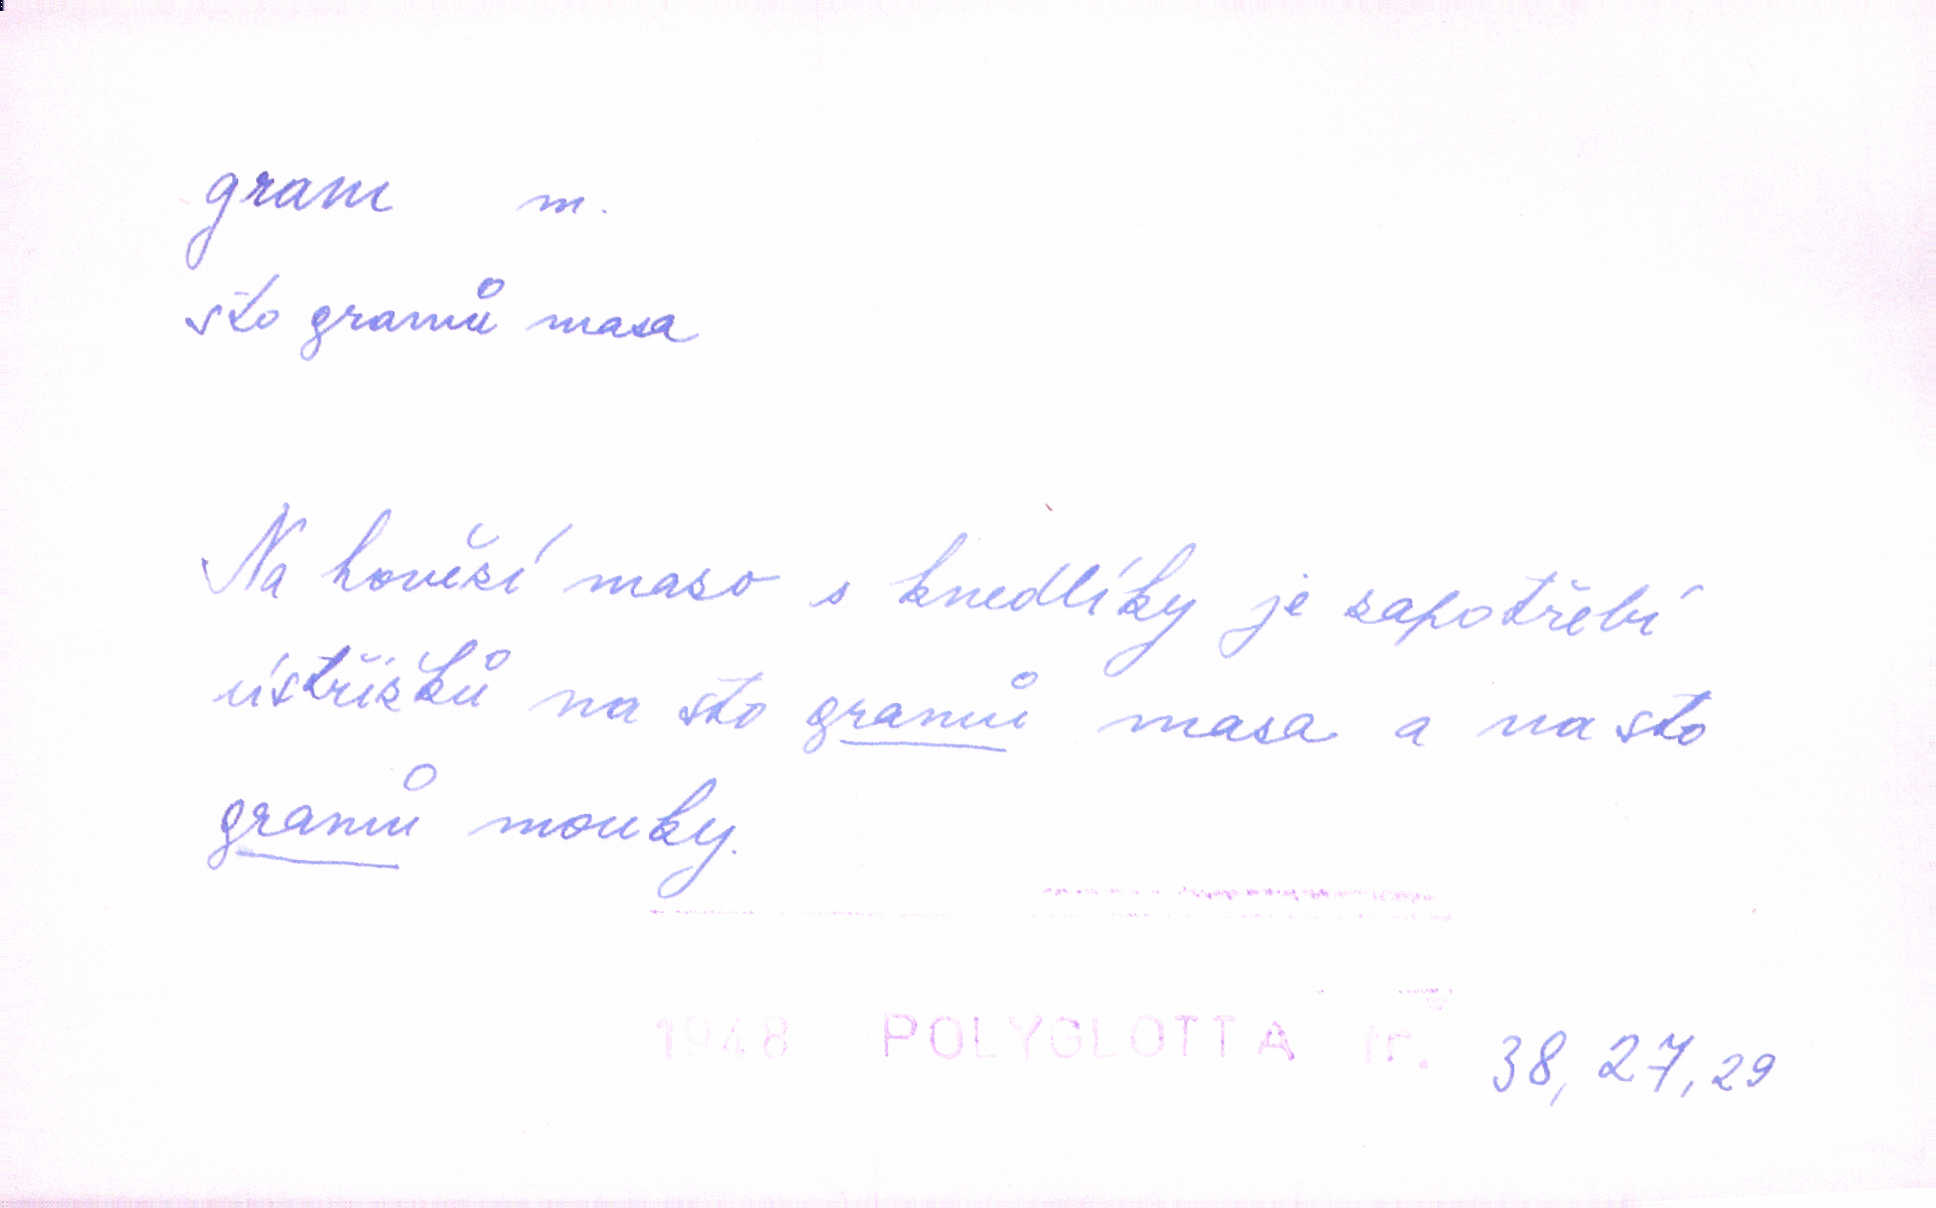 gram m.
sto gramů masa
Na hovězí maso s knedlíky je zapotřebí
ústřižků na sto gramů masa a na sto
gramů mouky.
1948 POLYGLOTTA tr. 38, 27, 29